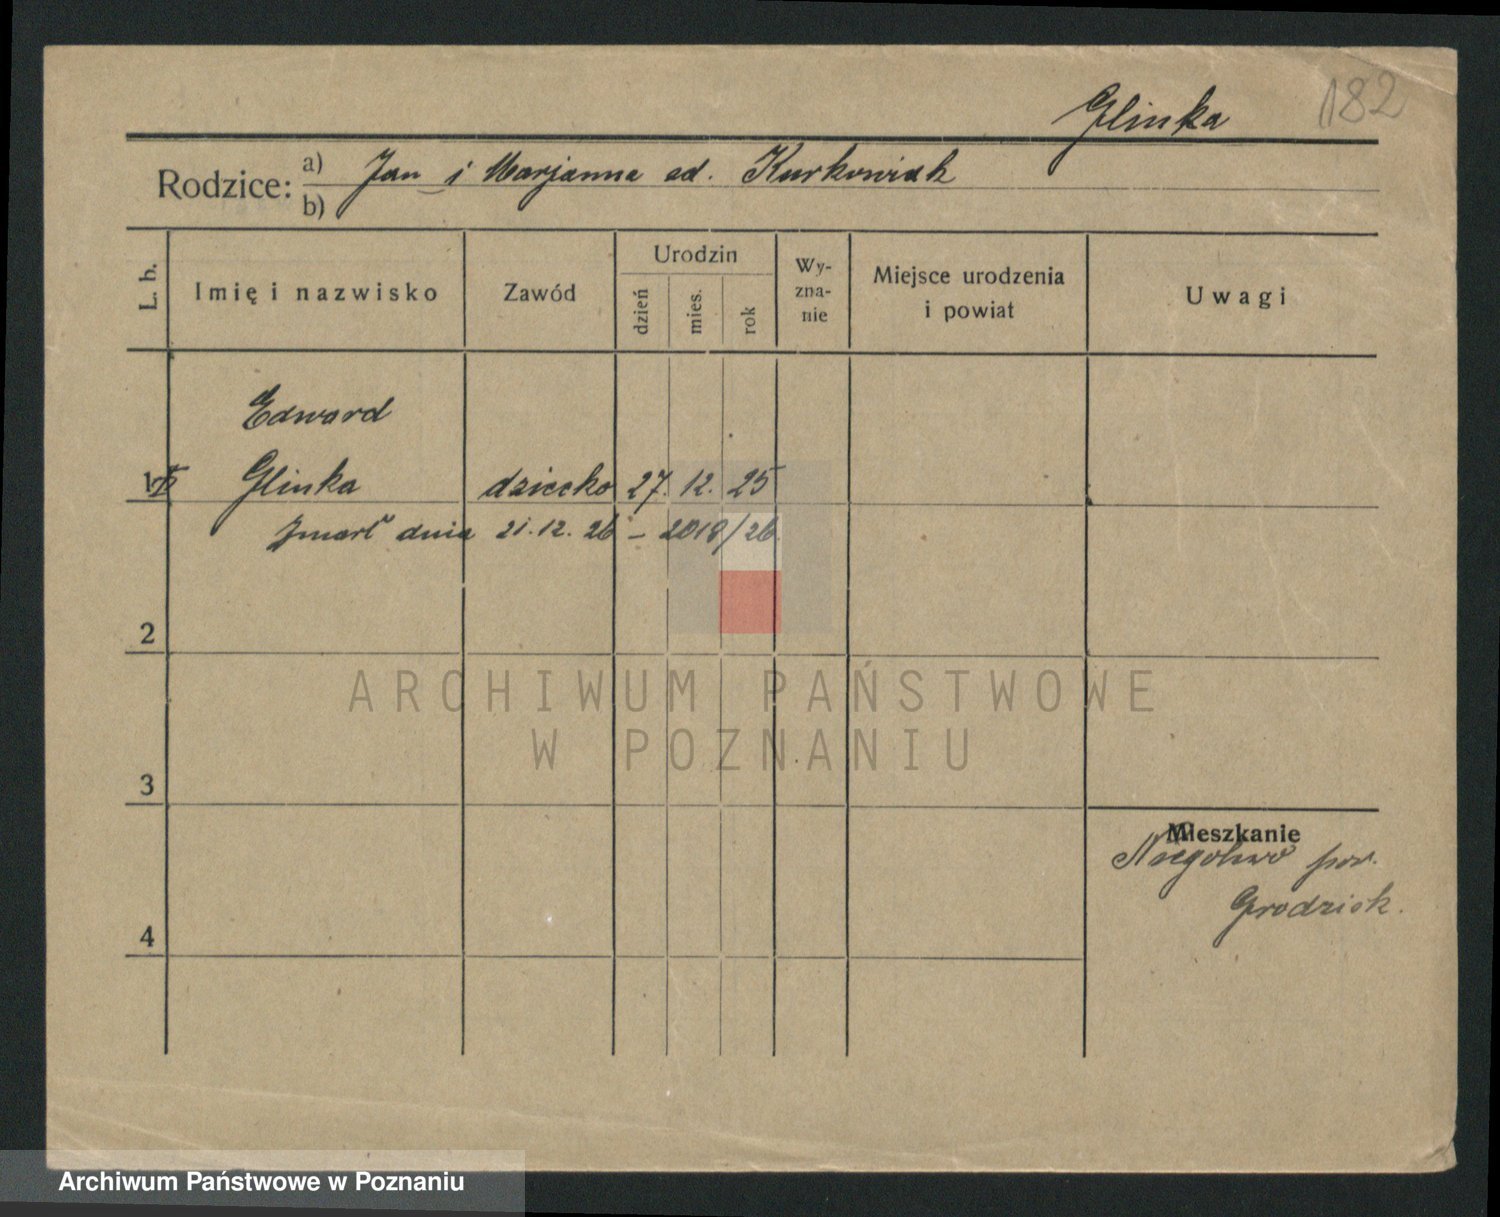 182
Glinka
Rodzice: a) Jan i Marjanna od. Kurkowiak
b)
L. b. Imię i nazwisko Zawód Urodzin dzień mies. rok Wy-zna-nie Miejsce urodzenia i powiat Uwagi
Edward
1 Glinka dziecko 27. 12. 25
Zmarł dnia 21. 12. 26 – 2018/26
2
ARCHIWUM PAŃSTWOWE
W POZNANIU
3
Mieszkanie
pow.
Grodzisk.
4
Archiwum Państwowe w Poznaniu